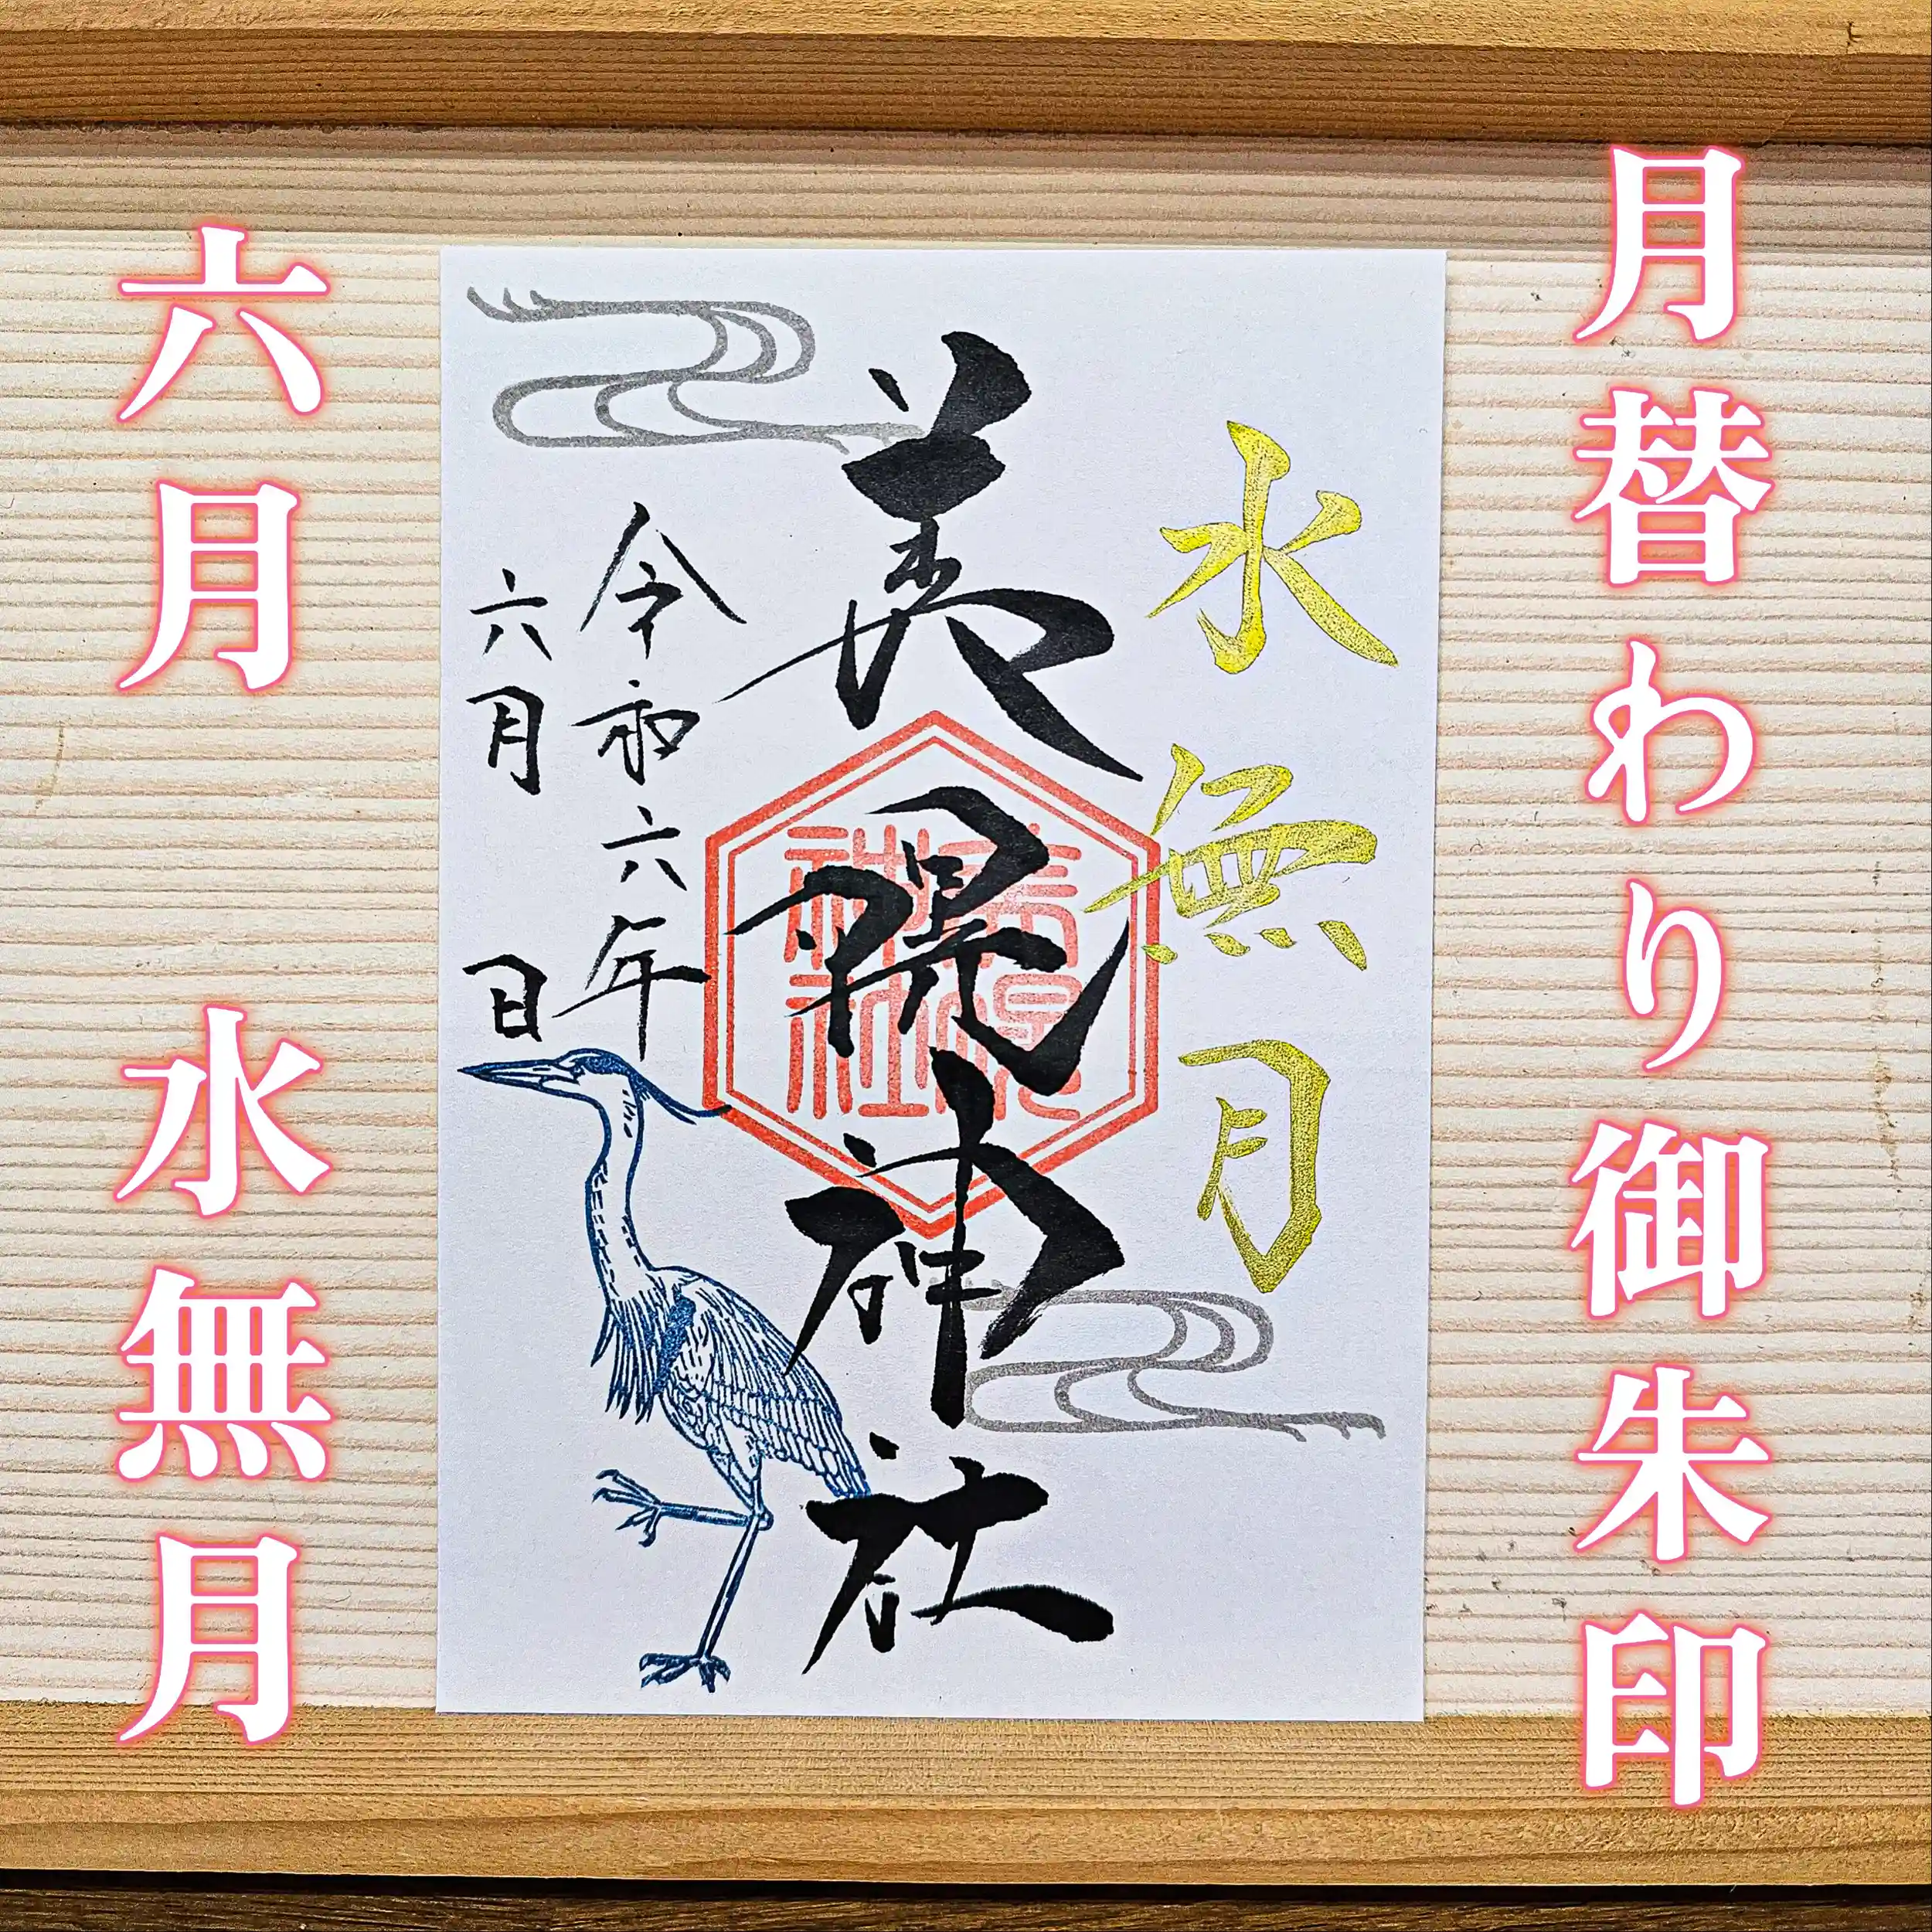 月替わり御朱印
水無月
美幌神社
美幌
神社
令和六年
六月 日
六月 水無月